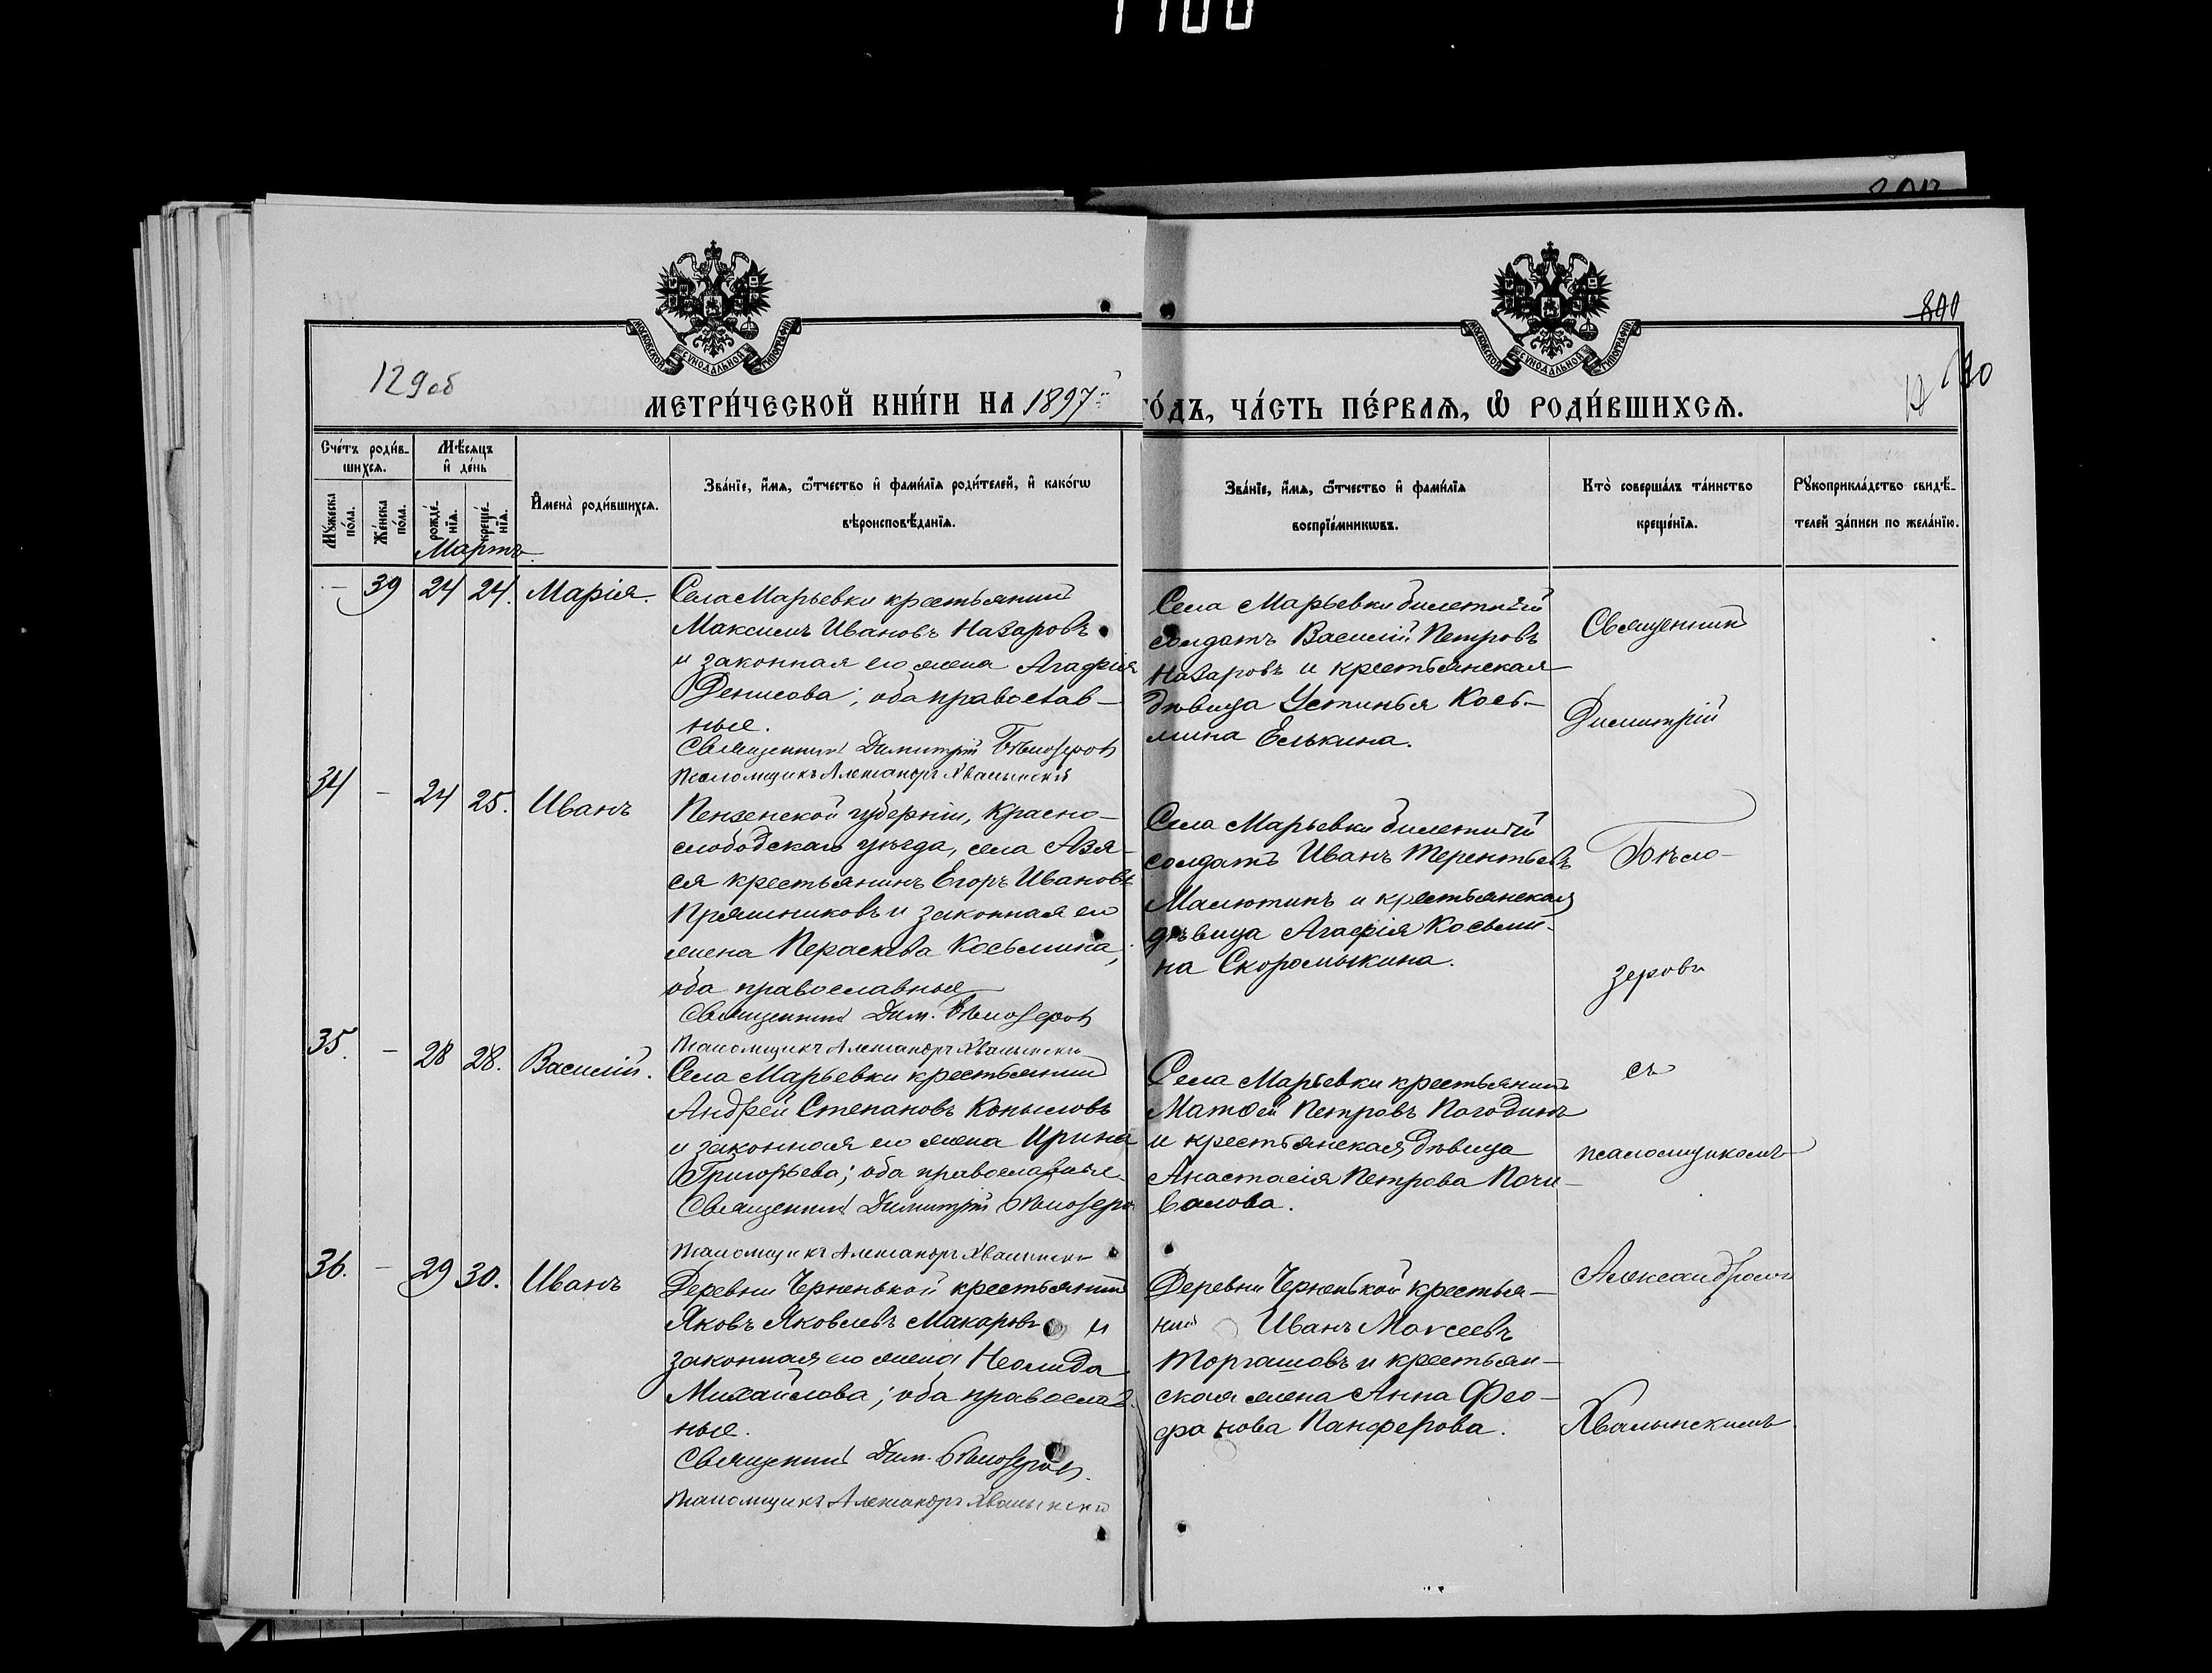 1100
800
130
129об
МОСКОВСКОЙ СѴНОДАЛЬНОЙ ТИПОГРАФІИ
МОСКОВСКОЙ СѴНОДАЛЬНОЙ ТИПОГРАФІИ
МЕТРИ́ЧЕСКОЙ КНИ́ГИ НА 1897й ГО́ДЪ, ЧА́СТЬ ПЕ́РВАѦ, Ѽ РОДИ́ВШИХСѦ.
Сче́тъ роди́в-
шихсѧ.
Мѣ́сѧцъ
и҆ де́нь
Мꙋ́жеска по́ла.
Же́нска по́ла.
рожде́-нїѧ.
креще́-нїѧ.
И҆мена̀ роди́вшихсѧ.
Зва́нїе, и҆́мѧ, ѻ҆́тчество и҆ фами́лїѧ роди́телей, и҆ како́гѡ
вѣроисповѣ́данїѧ.
Зва́нїе, и҆́мѧ, ѻ҆́тчество и҆ фами́лїѧ
воспрїе́мникѡвъ.
Кто̀ соверша́лъ та́инство
креще́нїѧ.
Рꙋкоприкла́дство свидѣ́-
телей за́писи по жела́нїю.
Мартъ
— 39 24 24. Марія.
Села Марьевки крестьянинъ
Максимъ Ивановъ Назаровъ
и законная его жена Агафія
Денисова; оба православ-
ные.
Священникъ Димитрій Бѣлозеровъ
Псаломщикъ Александръ Хвалынскій
Села Марьевки билетный
солдатъ Василій Петровъ
Назаровъ и крестьянская
дѣвица Устинья Козь-
мина Елькина.
34 — 24 25. Иванъ
Пензенской губерніи, Красно-
слободскаго уѣзда, села Азя-
ся крестьянинъ Егоръ Ивановъ
Пряшниковъ и законная его
жена Параскева Косьмина,
оба православные
Священникъ Дим. Бѣлозеровъ
Псаломщикъ Александръ Хвалынскій
Села Марьевки билетный
солдатъ Иванъ Терентьевъ
Малютинъ и крестьянская
дѣвица Агафія Косьми-
на Скоромыкина.
35. — 28 28. Василій.
Села Марьевки крестьянинъ
Андрей Степановъ Копыловъ
и законная его жена Ирина
Григорьева; оба православные
Священникъ Димитрій Бѣлозеровъ
Псаломщикъ Александръ Хвалынскій
Села Марьевки крестьянинъ
Матѳей Петровъ Погодинъ
и крестьянская дѣвица
Анастасія Петрова Почи-
валова.
36. — 29 30. Иванъ
Деревни Черненькой крестьянинъ
Яковъ Яковлевъ Макаровъ и
законная его жена Неонида
Михайлова; оба православ-
ные.
Священникъ Дим. Бѣлозеровъ.
Псаломщикъ Александръ Хвалынскій
Деревни Черненькой крестья-
нинъ Иванъ Моѵсеевъ
Торгашовъ и крестьян-
ская жена Анна Фео-
фанова Панферова.
Священникъ
Димитрій
Бѣло-
зеровъ
съ
псаломщикомъ
Александромъ
Хвалынскимъ